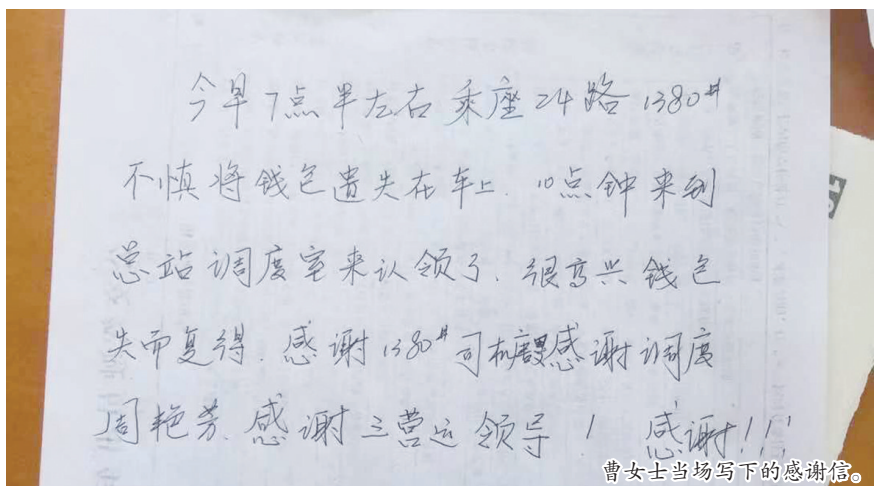 今早7点半左右乘座24路1380#
不慎将钱包遗失在车上.10点钟来到
总站调度室来认领了.很高兴钱包
失而复得.感谢1380#司机感谢调度
周艳芳.感谢三营运领导! 感谢!!!
曹女士当场写下的感谢信。